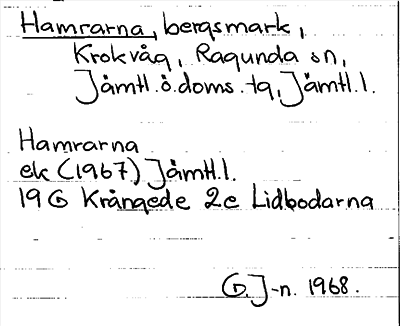 Hamrarna, bergsmark,
Krokvåg, Ragunda sn,
Jämtl.ö.doms.tg, Jämtl.l.
Hamrarna
ek (1967) Jämtl.l.
19 G Krångede 2e Lidbodarna
G. J-n. 1968.